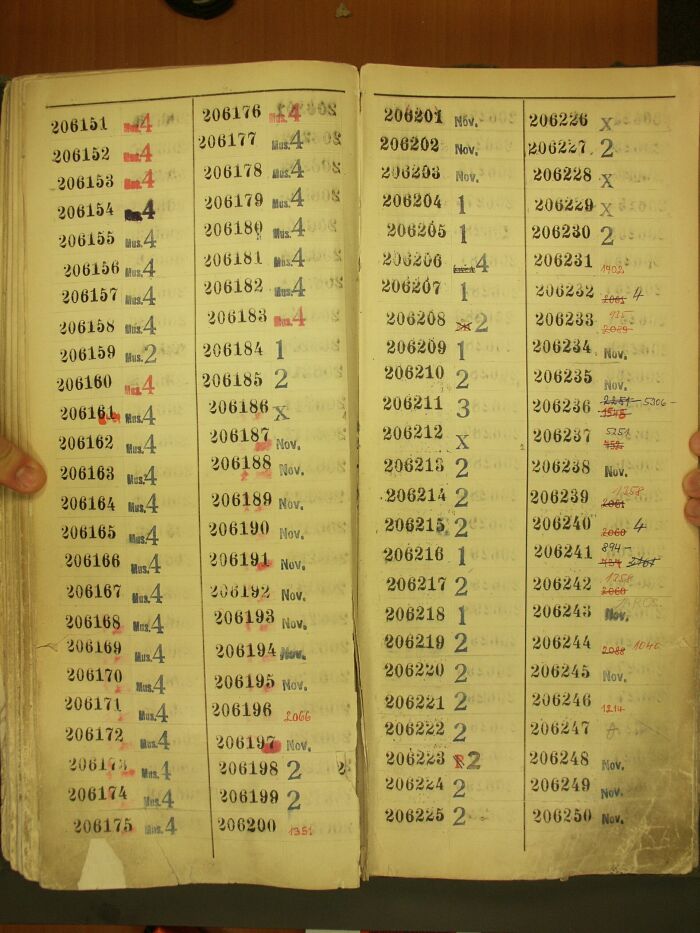 206151 Mus. 4
206152 Mus. 4
206153 Mus. 4
206154 Mus. 4
206155 Mus. 4
206156 Mus. 4
206157 Mus. 4
206158 Mus. 4
206159 Mus. 2
206160 Mus. 4
206161 Mus. 4
206162 Mus. 4
206163 Mus. 4
206164 Mus. 4
206165 Mus. 4
206166 Mus. 4
206167 Mus. 4
206168 Mus. 4
206169 Mus. 4
206170 Mus. 4
206171 Mus. 4
206172 Mus. 4
206173 Mus. 4
206174 Mus. 4
206175 Mus. 4
206176 Mus. 4
206177 Mus. 4
206178 Mus. 4
206179 Mus. 4
206180 Mus. 4
206181 Mus. 4
206182 Mus. 4
206183 Mus. 4
206184 1
206185 2
206186 x
206187 Nov.
206188 Nov.
206189 Nov.
206190 Nov.
206191 Nov.
206192 Nov.
206193 Nov.
206194 Nov.
206195 Nov.
206196 2066
206197 Nov.
206198 2
206199 2
206200 1351
206201 Nov.
206202 Nov.
206203 Nov.
206204 1
206205 1
206206 4
206207 1
206208 2
206209 1
206210 2
206211 3
206212 x
206213 2
206214 2
206215 2
206216 1
206217 2
206218 1
206219 2
206220 2
206221 2
206222 2
206223 2
206224 2
206225 2
206226 x
206227 2
206228 x
206229 x
206230 2
206231 1902
206232 2061 4
206233 935 2089
206234 Nov.
206235 Nov.
206236 2251 5306 1545
206237 5251
206238 Nov.
206239 1258 2061
206240 2060 4
206241 894
206242 1258 2060
206243 Nov.
206244 2088 1046
206245 Nov.
206246 1214
206247
206248 Nov.
206249 Nov.
206250 Nov.